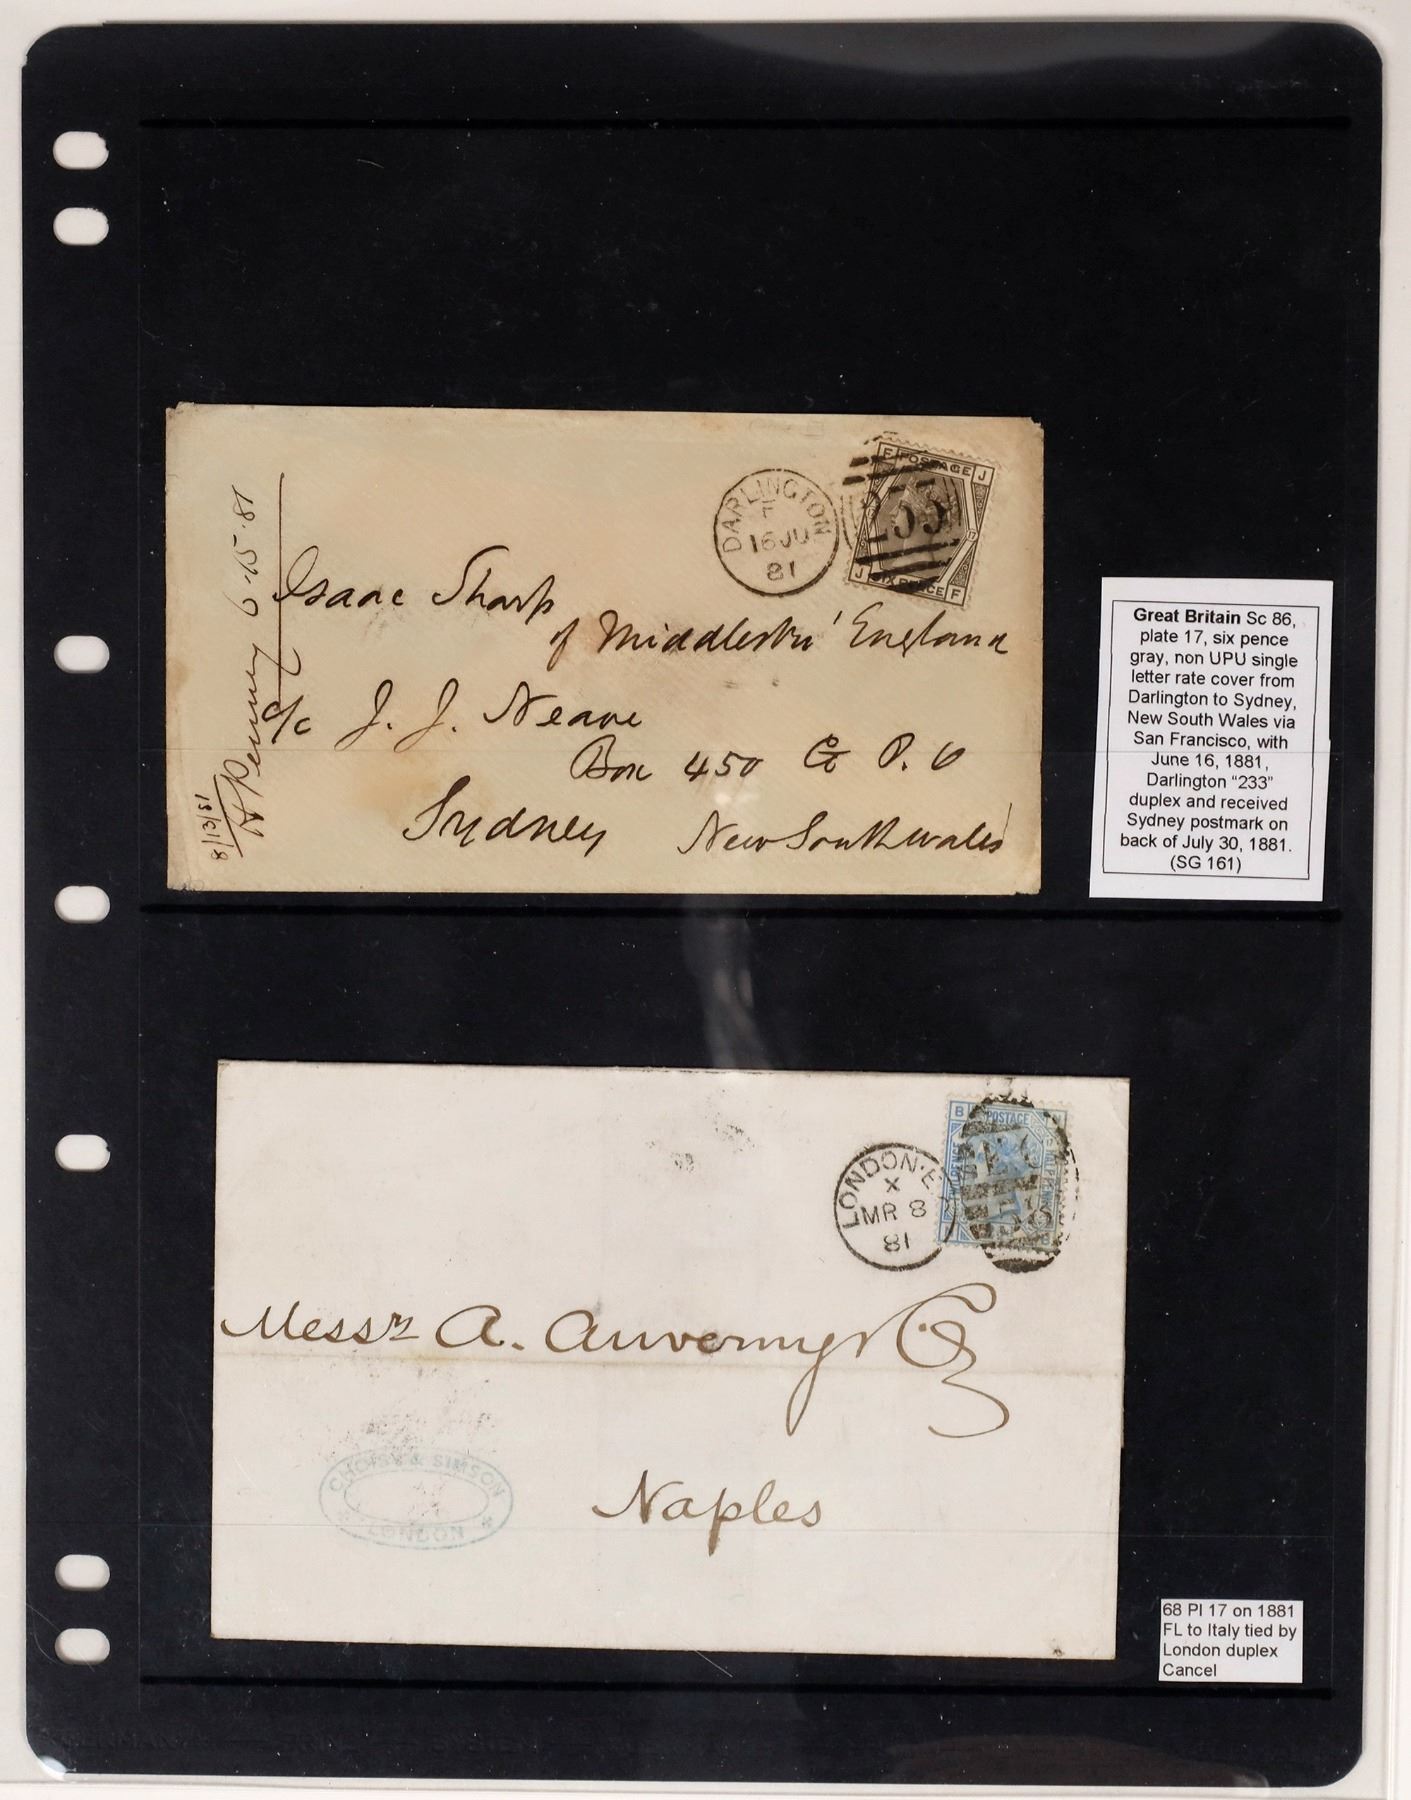 DARLINGTON
F
16 JU
81
F POSTAGE J
J SIX PENCE F
Isaac Sharp
of Middlesbro' England
c/o J. J. Neave
Box 450 G. P. O
Sydney New South Wales
6-15-81
8/13/81
Great Britain Sc 86,
plate 17, six pence
gray, non UPU single
letter rate cover from
Darlington to Sydney,
New South Wales via
San Francisco, with
June 16, 1881,
Darlington "233"
duplex and received
Sydney postmark on
back of July 30, 1881.
(SG 161)
LONDON·E
X
MR 8
81
B POSTAGE
Messrs A. Auverny & Co
Naples
CHOISY & SIMSON
LONDON
68 Pl 17 on 1881
FL to Italy tied by
London duplex
Cancel